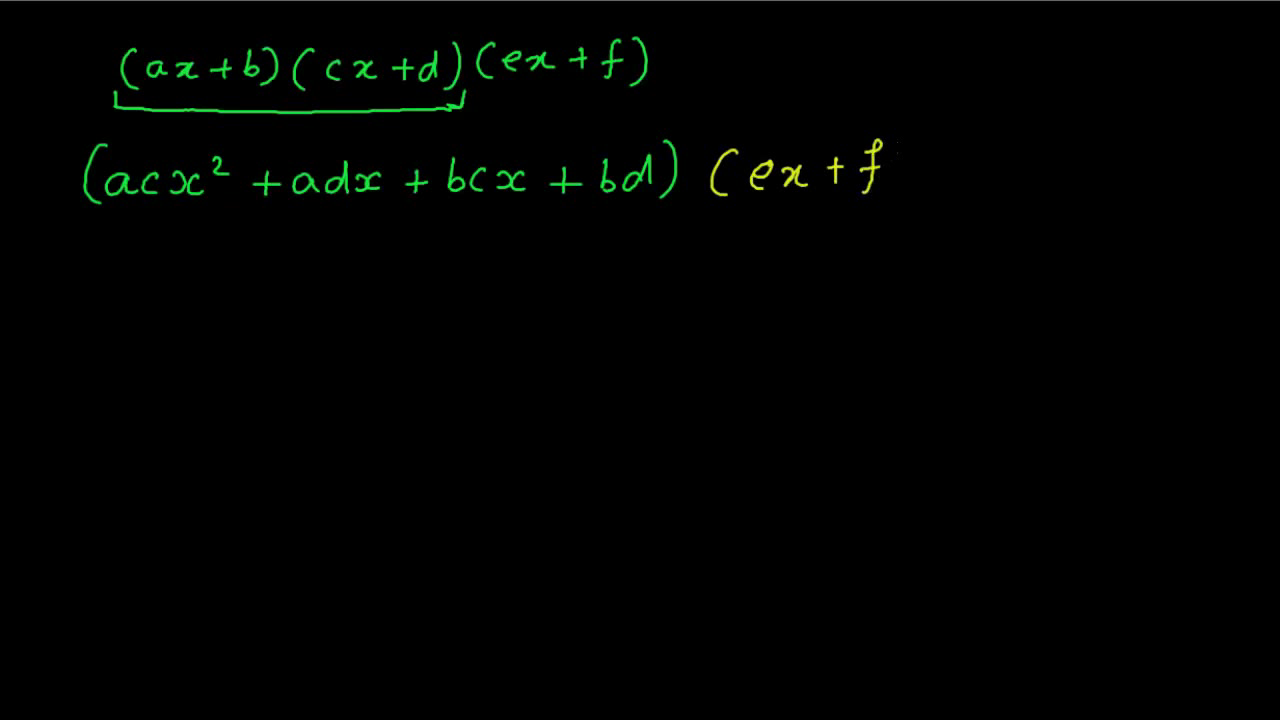 (ax+b)(cx+d)(ex+f)
(acx² + adx + bcx + bd) (ex + f